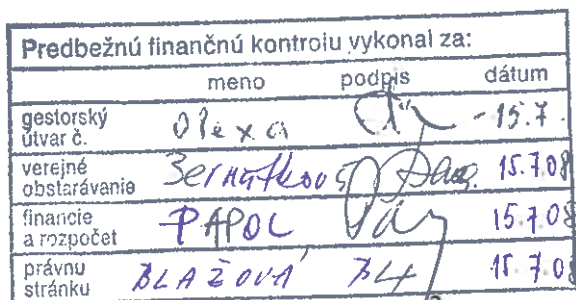 Predbežnú finančnú kontrolu vykonal za:
meno podpis dátum
gestorský útvar č. Olexa - 15.7.
verejné obstarávanie 15.7.08
financie a rozpočet PAPOL 15.7.08
právnu stránku BLAŽOVÁ 15.7.08